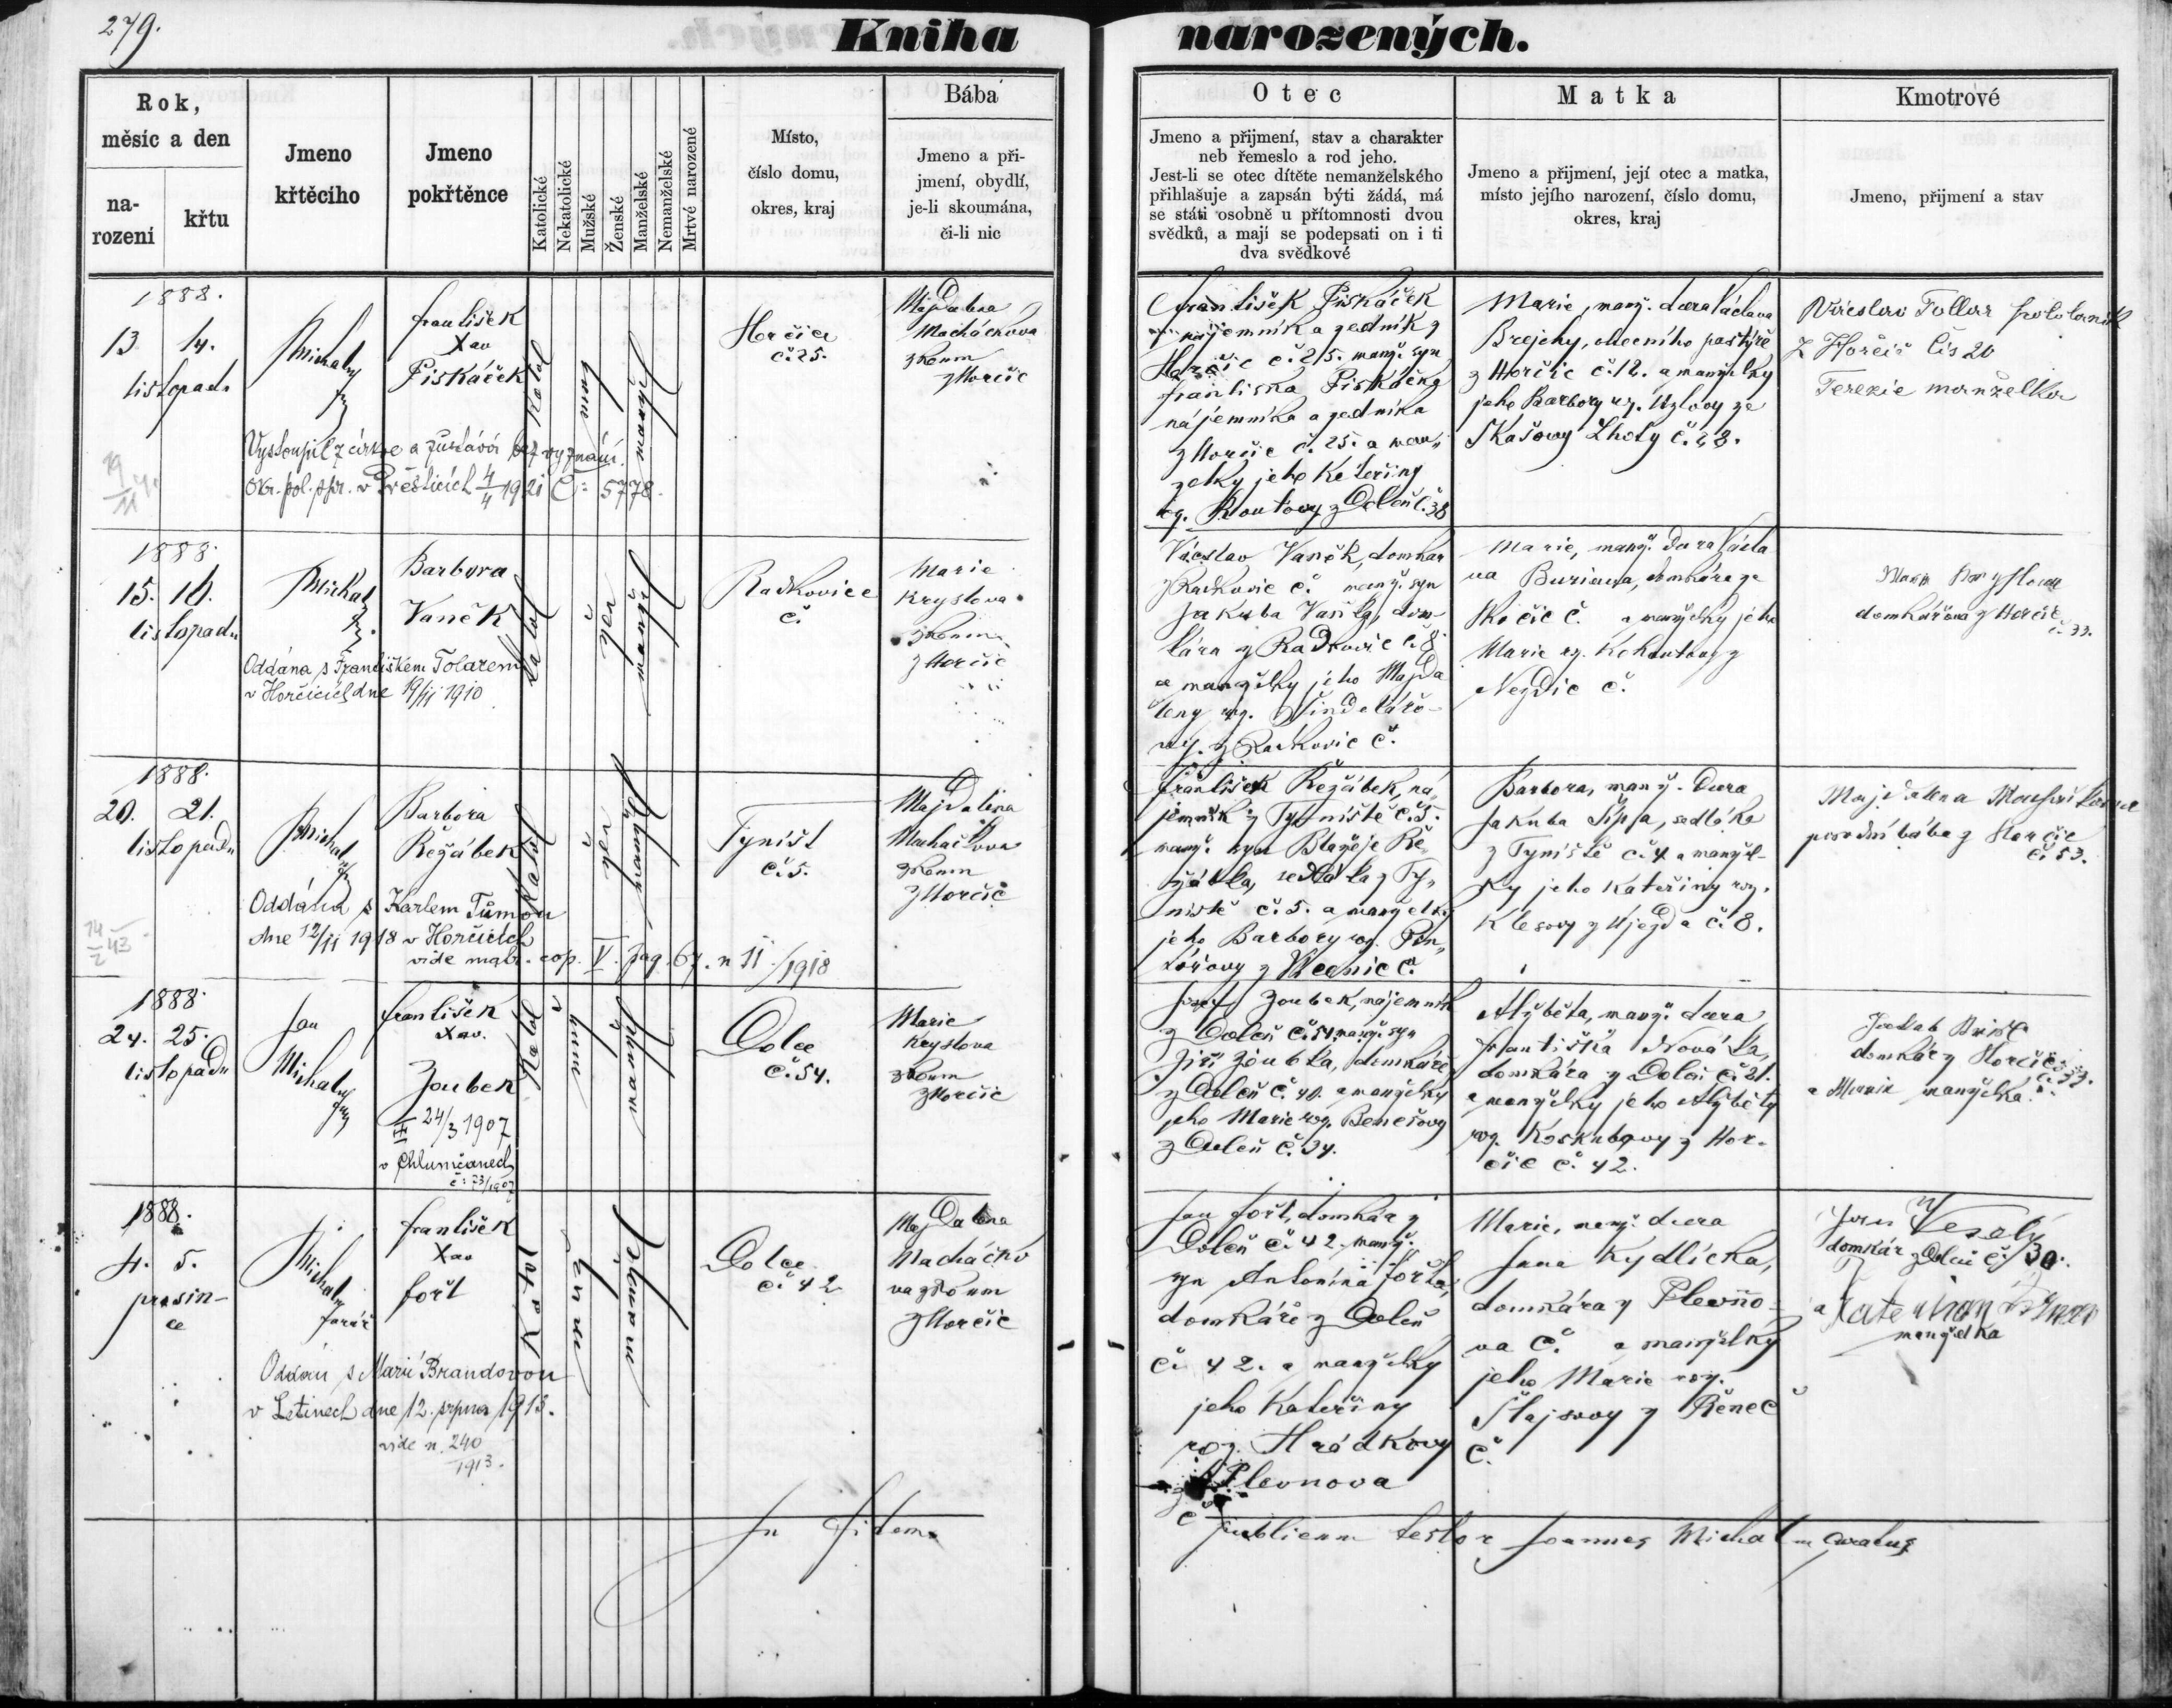 279.
Kniha narozených.
Rok,
měsíc a den
na-
rození
křtu
Jmeno
křtěcího
Jmeno
pokřtěnce
Katolické
Nekatolické
Mužské
Ženské
Manželské
Nemanželské
Mrtvé narozené
Místo,
číslo domu,
okres, kraj
Bába
Jmeno a při-
jmení, obydlí,
je-li skoumána,
či-li nic
Otec
Jmeno a přijmení, stav a charakter
neb řemeslo a rod jeho.
Jest-li se otec dítěte nemanželského
přihlašuje a zapsán býti žádá, má
se státi osobně u přítomnosti dvou
svědků, a mají se podepsati on i ti
dva svědkové
Matka
Jmeno a přijmení, její otec a matka,
místo jejího narození, číslo domu,
okres, kraj
Kmotrové
Jmeno, přijmení a stav
1888.
13. 14.
listopadu
Michal
František
Xav
Piskáček
Katol
Horčice
č. 25.
Majdalena
Macháčkova
zkoum
z Horčic
František Piskáček
nájemník a zedník z
Horčic č. 25. manž. syn
Františka Piskáčka
nájemníka a zedníka
z Horčic č. 25. a man-
želky jeho Kateřiny
roz. Koutovy z Doleň č. 38
Marie, manž. dcera Václava
Brejchy, obecního pastýře
z Horčic č. 12. a manželky
jeho Barbory roz. Uzlovy ze
Skašovy Lhoty č. 28.
Václav Tollar
z Horčic čis 20
Terezie manželka
Vystoupil z církve a zůstává bez vyznání.
Okr. pol. spr. v Přešticích 4/4 1921 Č: 5778.
1888.
15. 16.
listopadu
Michal
Barbora
Vaněk
Katol
Radkovice
č.
Marie
Kryslova
zkoum.
z Horčic
Václav Vaněk, domkar
z Radkovic č. manž. syn
Jakuba Vaňka, dom-
kára z Radkovic č. 8
a manželky jeho Majda
leny roz. Šindelářo-
vy. z Radkovic č.
Marie, manž. dcera Václa
va Buriana, domkára ze
Skočic č. a manželky jeho
Marie roz. Kohoutovy z
Nezdic č.
domkářova z Horčic
č. 33.
Oddána s Františkem Tolarem
v Horčicích dne 19/11 1910
1888.
20. 21.
listopadu
Michal
Barbora
Řežábek
Katol
Týnišť
č. 5.
Majdalena
Macháčkova
zkoum
z Horčic
František Řežábek, ná-
jemník z Týniště č. 5.
manž. syn Blažeje Ře-
žábka, sedláka z Tý-
niště č. 5. a manželky
jeho Barbory roz.
Barbora, manž. dcera
Jakuba Šípa, sedláka
z Týniště č. 4 a manžel-
ky jeho Kateřiny roz.
Klesovy z Újezda č. 8.
Majdalena
porodní bába z Horčic
č. 53.
Oddána s Karlem Tůmou
dne 12/11 1918 v Horčicích
vide matr. cop. V. pag. 67. n 11/1918
1888.
24. 25.
listopadu
Jan
Michal
František
Xav.
Zoubek
24/3 1907
v Chlumčanech
č: 73/1907
Katol
Dolce
č. 54.
Marie
Kryslova
zkoum
z Horčic
Josef Zoubek, nájemník
z Doleň č. 54 manž. syn
Jiří Zoubka, domkáře
z Doleň č. 40. a manželky
jeho Marie roz. Benešovy
z Doleň č. 34.
Alžběta, manž. dcera
Františka Nováka,
domkára z Doleň č. 21.
a manželky jeho Alžběty
roz. Koskubovy z Hor-
čic č. 42.
Jakub
domkár z Horčic č. 33.
a Marie manželka.
1888.
4. 5.
prosin-
ce
J.
Michal
farář
František
Xav
Fořt
Katol
Dolce
č. 42
Majdalena
Macháčko
va zkoum
z Horčic
Jan Fořt, domkár z
Doleň č. 42. manž.
syn Antonína Fořta,
domkáře z Doleň
č. 42. a manželky
jeho Kateřiny
roz. Hrádkovy
z Plevnova
č
Marie, manž. dcera
Jana Kydlíčka,
domkára z Plevňo-
va č. a manželky
jeho Marie roz.
Šlajsovy z Řeneč
č.
Jan Veselý
domkár z Doleň č. 30.
a Kateřina
manželka
Oddán s Marií Brandovou
v Letinech dne 12. srpna 1913.
vide n. 240
1913.
In fidem
publicam testor Joannes Michal curatus